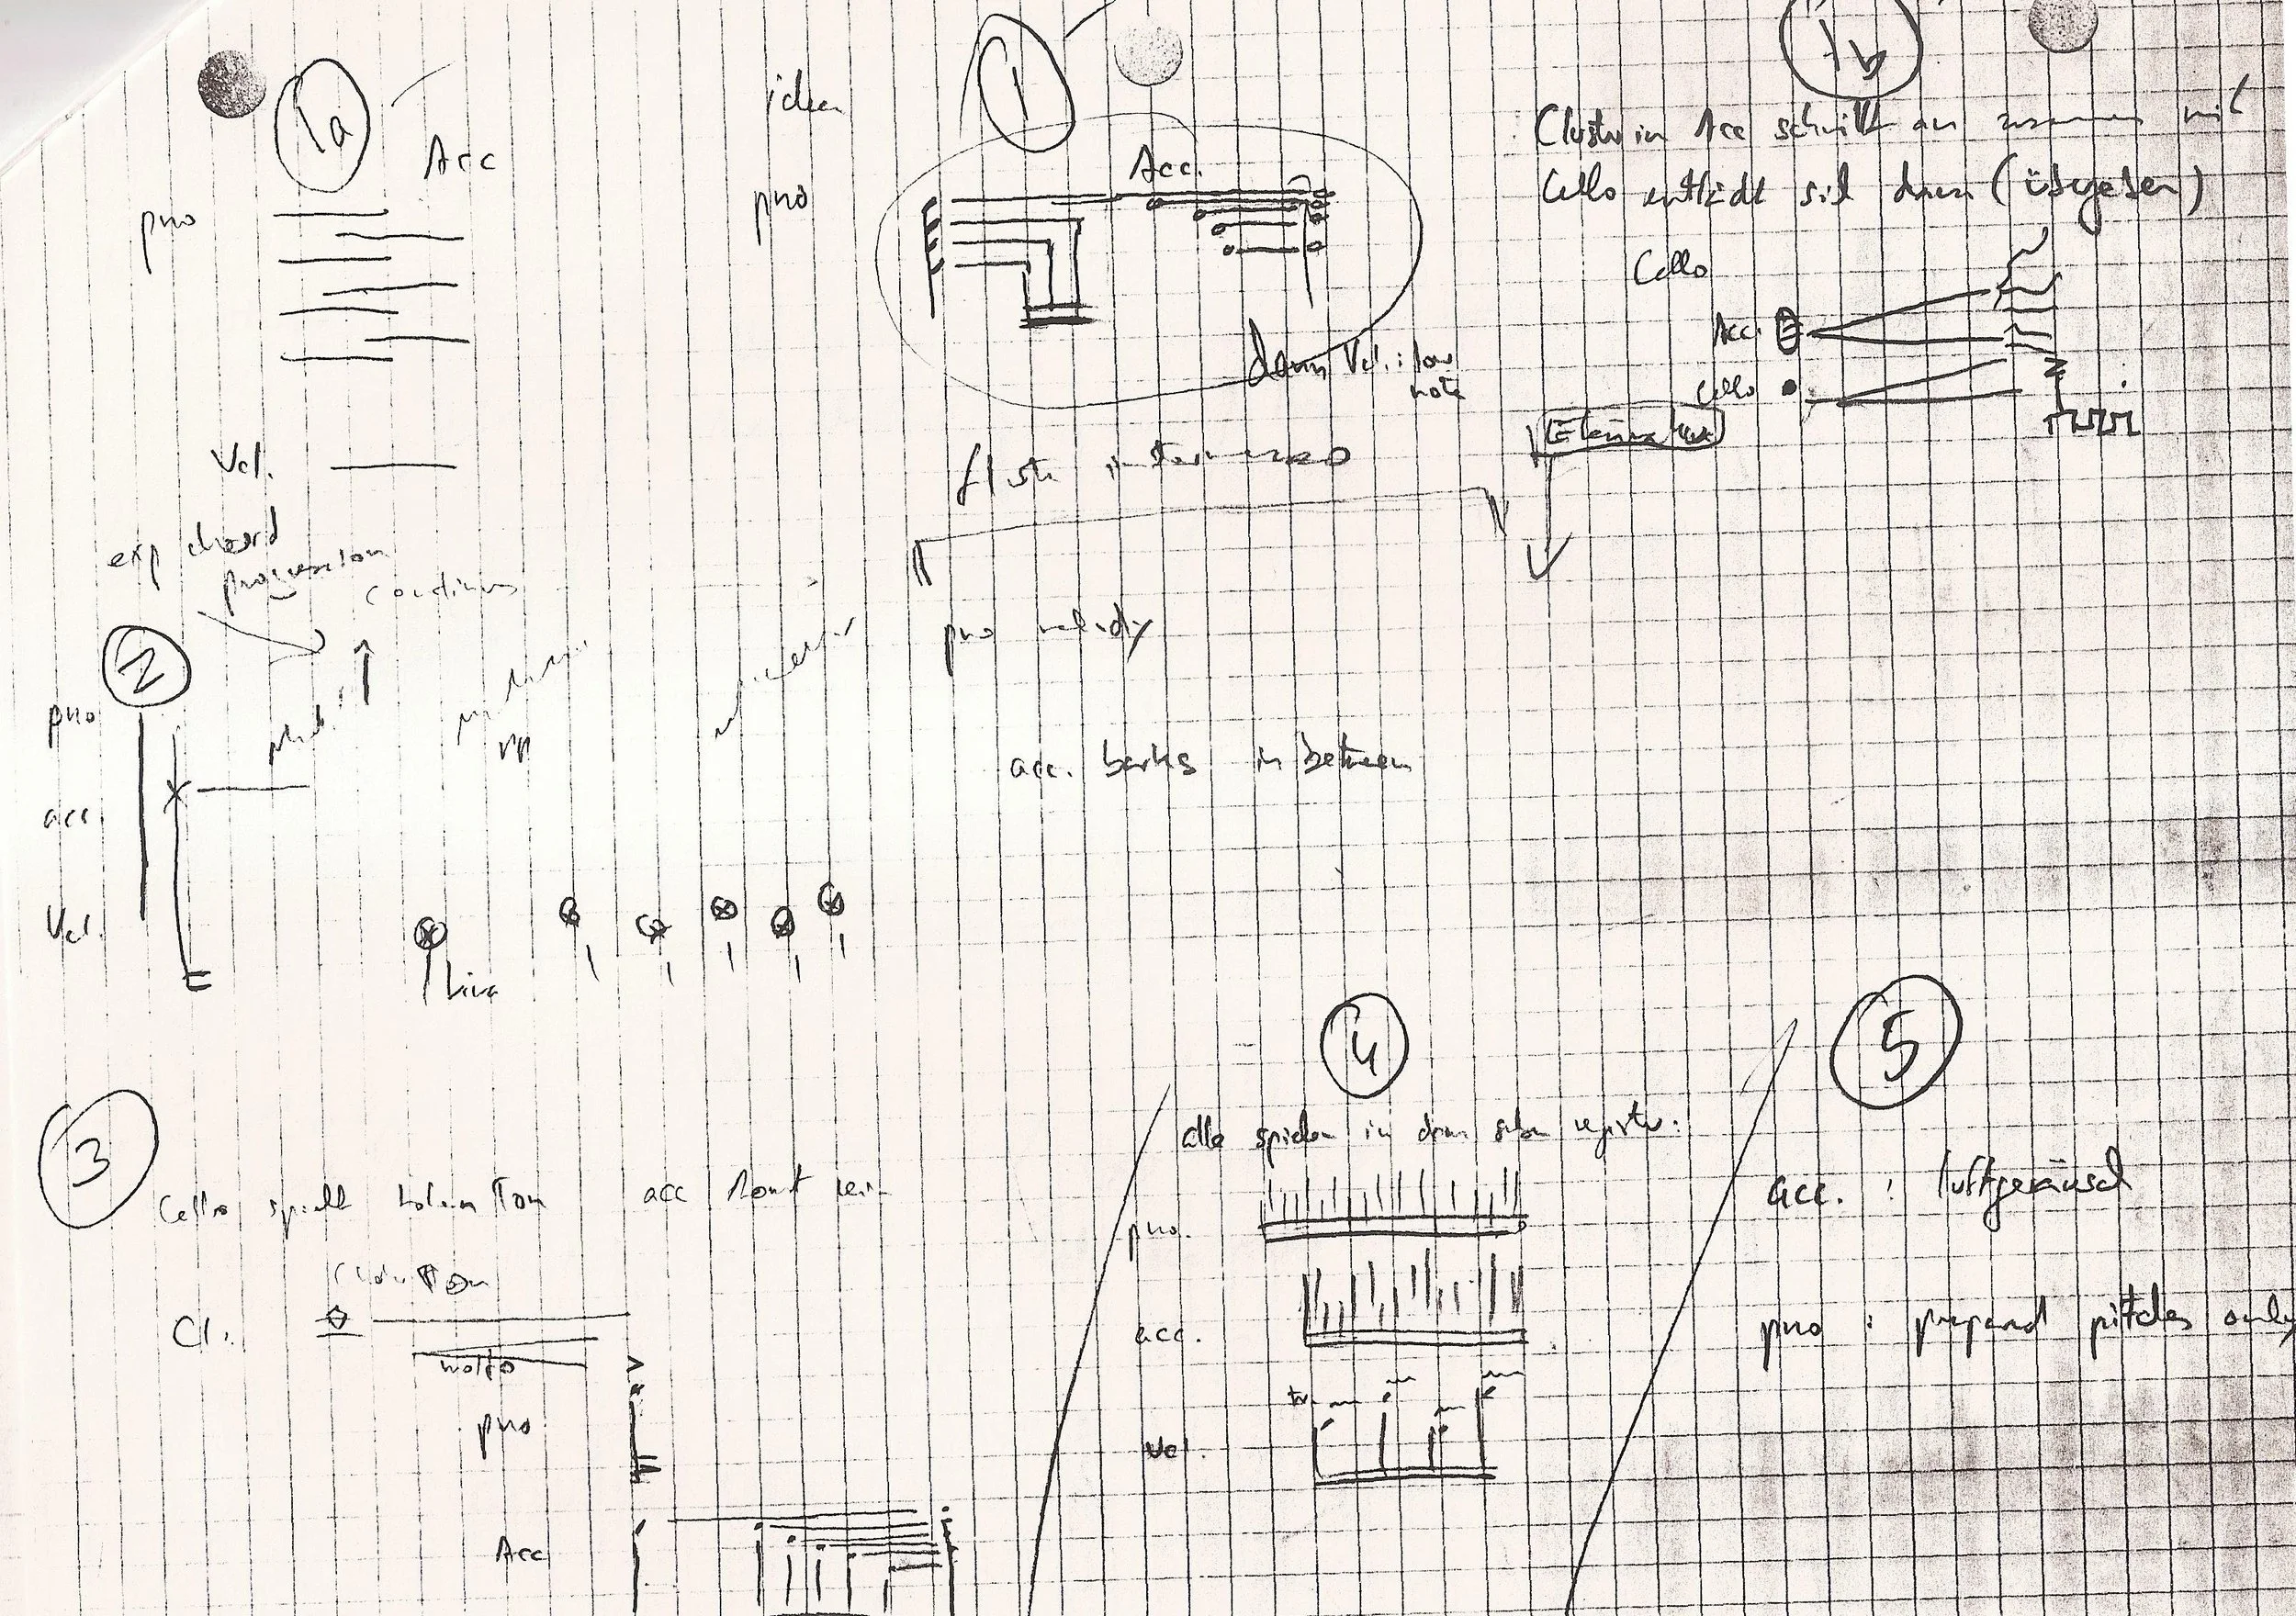 1a
Acc
pno
Vcl.
idea
1
pno
Acc.
dann Vcl.: low
note
1b
Cluster in Acc schwillt an zusammen mit
Cello entlädt sich dann (übergeben)
Cello
Acc.
Cello
intermezzo
exp chord
progression
continues
2
pno
acc.
Vcl.
pno melody
acc. barks in between
3
Cello spielt hohen Ton
acc kommt rein
Cl.
molto
pno
Acc
4
alle spielen in dem selben register:
pno.
acc.
tr
Vcl.
5
acc. : luftgeräusch
pno : prepared pitches only